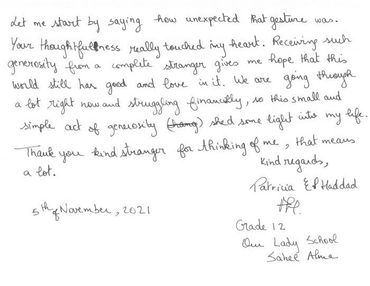 Let me start by saying how unexpected that gesture was.
Your thoughtfulness really touched my heart. Receiving such
generosity from a complete stranger gives me hope that this
world still has good and love in it. We are going through
a lot right now and struggling financially, so this small and
simple act of generosity shed some light into my life.
Thank you kind stranger for thinking of me, that means
a lot.
Kind regards,
Patricia El Haddad
5th of November, 2021
Grade 12
Our Lady School
Sahel Alma